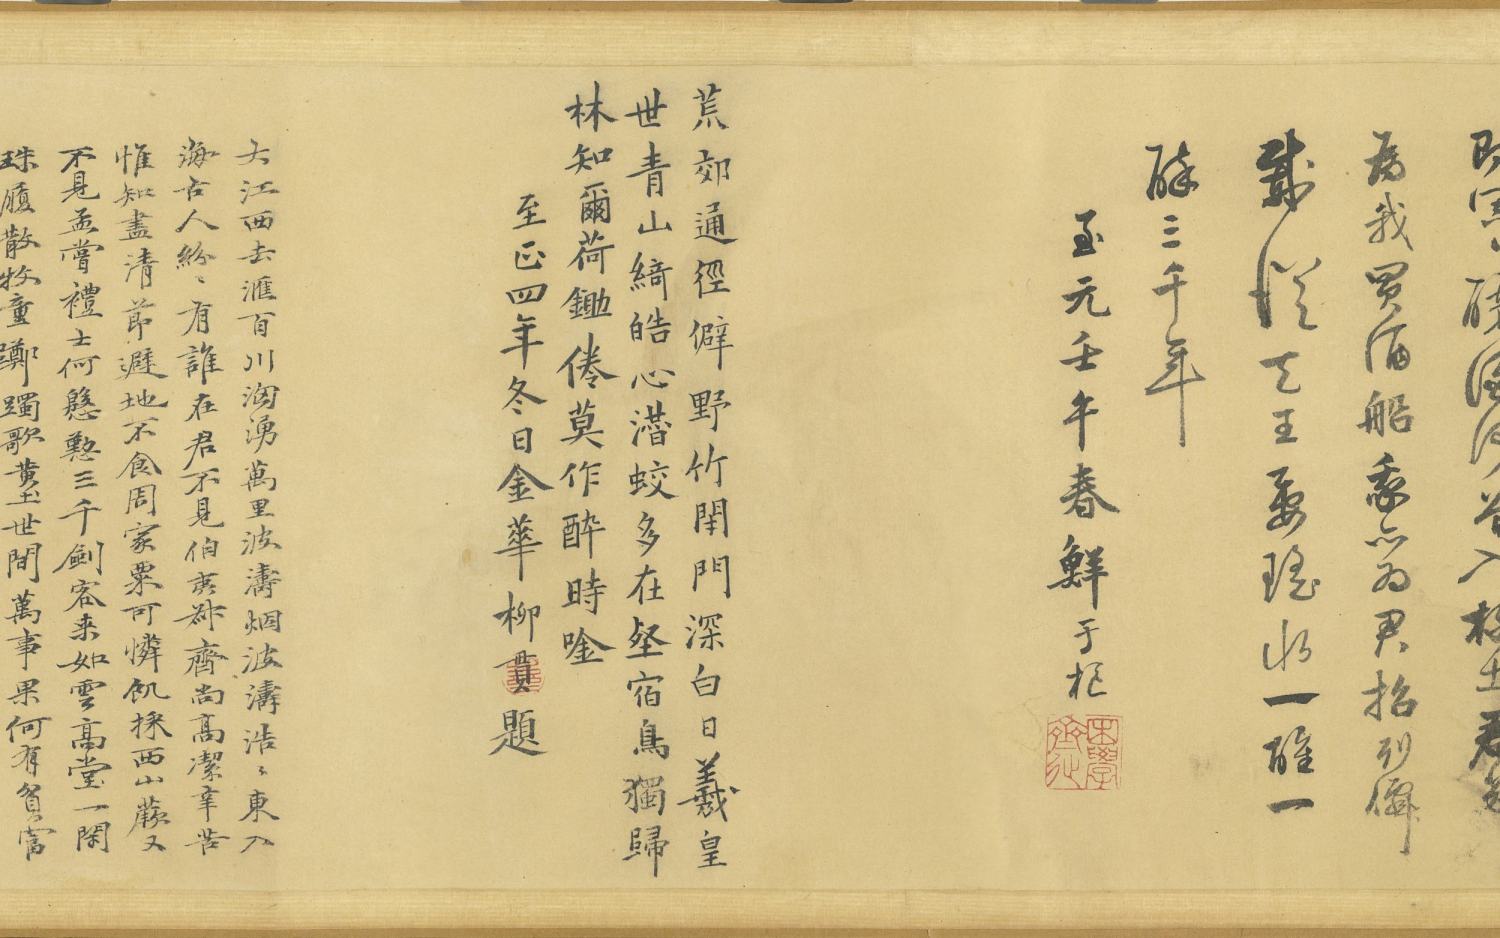 為我買酒船我亦為君招列僊
戲從天王母瑤水一醉一
醉三千年
至元壬午春鮮于樞
荒郊通徑僻野竹閉門深白日羲皇
世青山綺皓心潛蛟多在壑宿鳥獨歸
林知爾荷鋤倦莫作醉時唫
至正四年冬日金華柳貫題
大江西去滙百川洶湧萬里波濤烟波濤浩〻東入
海古人紛〻有誰在君不見伯夷叔齊尚高潔辛苦
惟知盡清節避地不食周家粟可憐飢採西山蕨又
不見孟嘗禮士何慇懃三千劍客來如雲高堂一閑
珠履散牧童躑躅歌黃土世間萬事果何有貧富